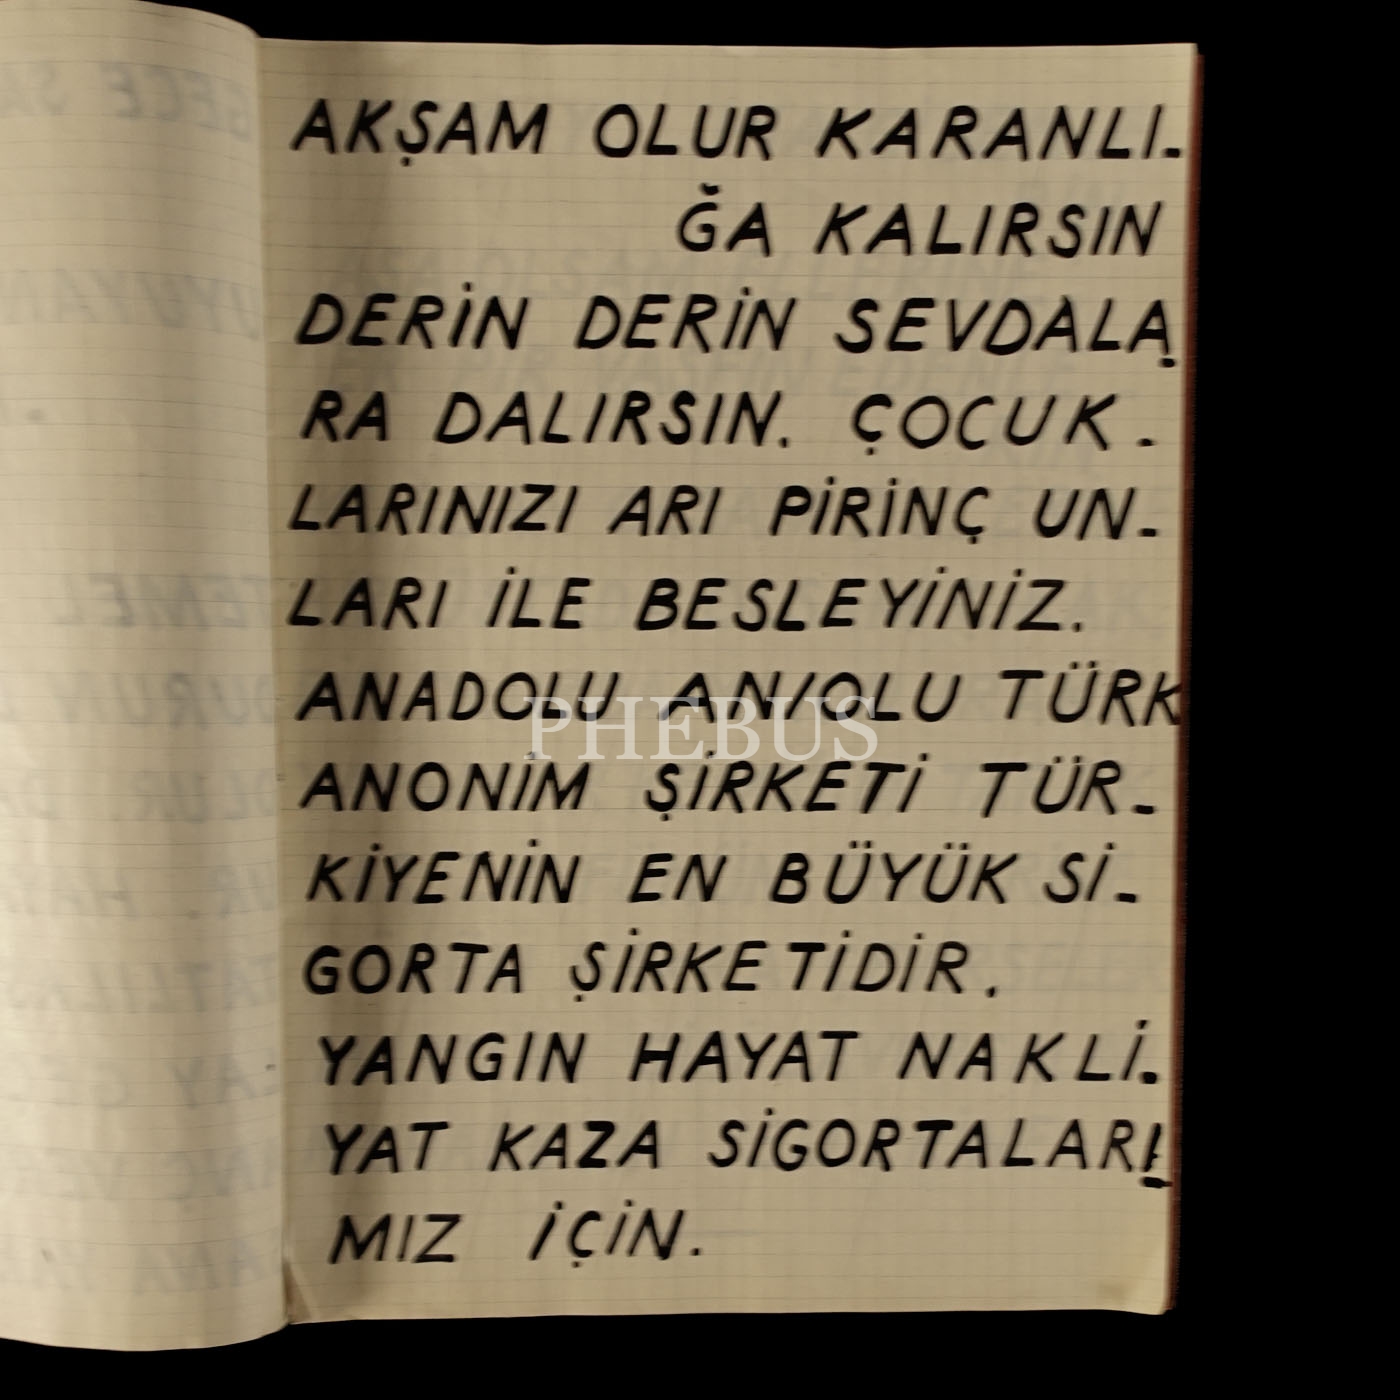 AKŞAM OLUR KARANLI-
ĞA KALIRSIN
DERİN DERİN SEVDALA-
RA DALIRSIN. ÇOCUK-
LARINIZI ARI PİRİNÇ UN-
LARI İLE BESLEYİNİZ.
ANADOLU ANOLU TÜRK
ANONİM ŞİRKETİ TÜR-
KİYENİN EN BÜYÜK Sİ-
GORTA ŞİRKETİDİR.
YANGIN HAYAT NAKLİ-
YAT KAZA SİGORTALARI-
MIZ İÇİN.
PHEBUS